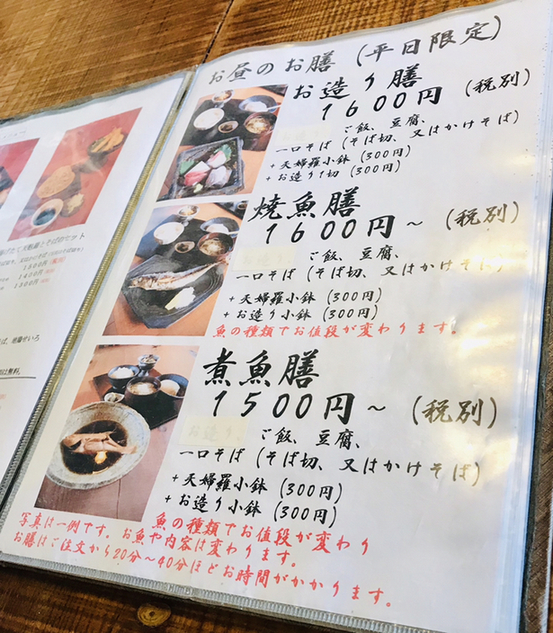 お昼のお膳（平日限定）
お造り膳
1600円（税別）
ご飯、豆腐、
一口そば（そば切、又はかけそば）
+天婦羅小鉢（300円）
+お造り1切（300円）
焼魚膳
1600円～（税別）
ご飯、豆腐、
一口そば（そば切、又はかけそば）
+天婦羅小鉢（300円）
+お造り小鉢（300円）
魚の種類でお値段が変わります。
煮魚膳
1500円～（税別）
ご飯、豆腐、
一口そば（そば切、又はかけそば）
+天婦羅小鉢（300円）
+お造り小鉢（300円）
魚の種類でお値段が変わり
写真は一例です。お魚や内容は変わります。
お膳はご注文から20分～40分ほどお時間がかかります。